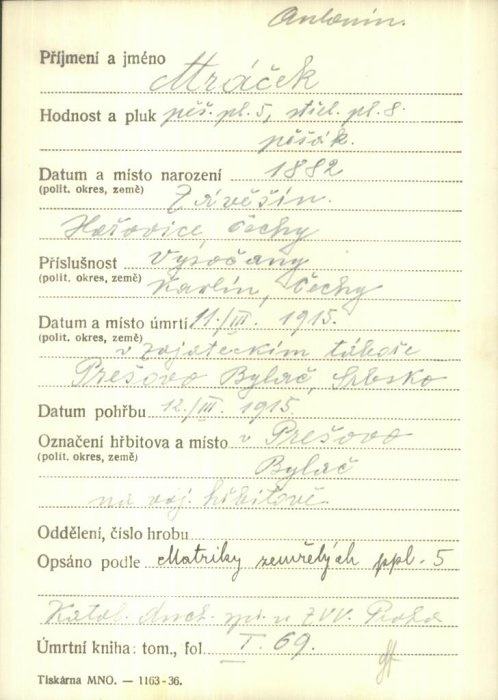 Antonín.
Příjmení a jméno Mráček
Hodnost a pluk pěš. pl. 5, střel. pl. 8.
pěšák.
Datum a místo narození 1882
(polit. okres, země) Závěšín.
Hořovice, Čechy
Příslušnost Vysočany
(polit. okres, země) Karlín, Čechy
Datum a místo úmrtí 11./III. 1915.
(polit. okres, země)
v zajateckím táboře
Prešovo Bylač, Srbsko
Datum pohřbu 12./III. 1915.
Označení hřbitova a místo v Prešovo
(polit. okres, země) Bylač
na voj. hřbitově.
Oddělení, číslo hrobu
Opsáno podle Matriky zemřelých ppl. 5
Katol. duch. spr. u ZVV. Praha
Úmrtní kniha: tom., fol. I. 69.
Tiskárna MNO. — 1163-36.